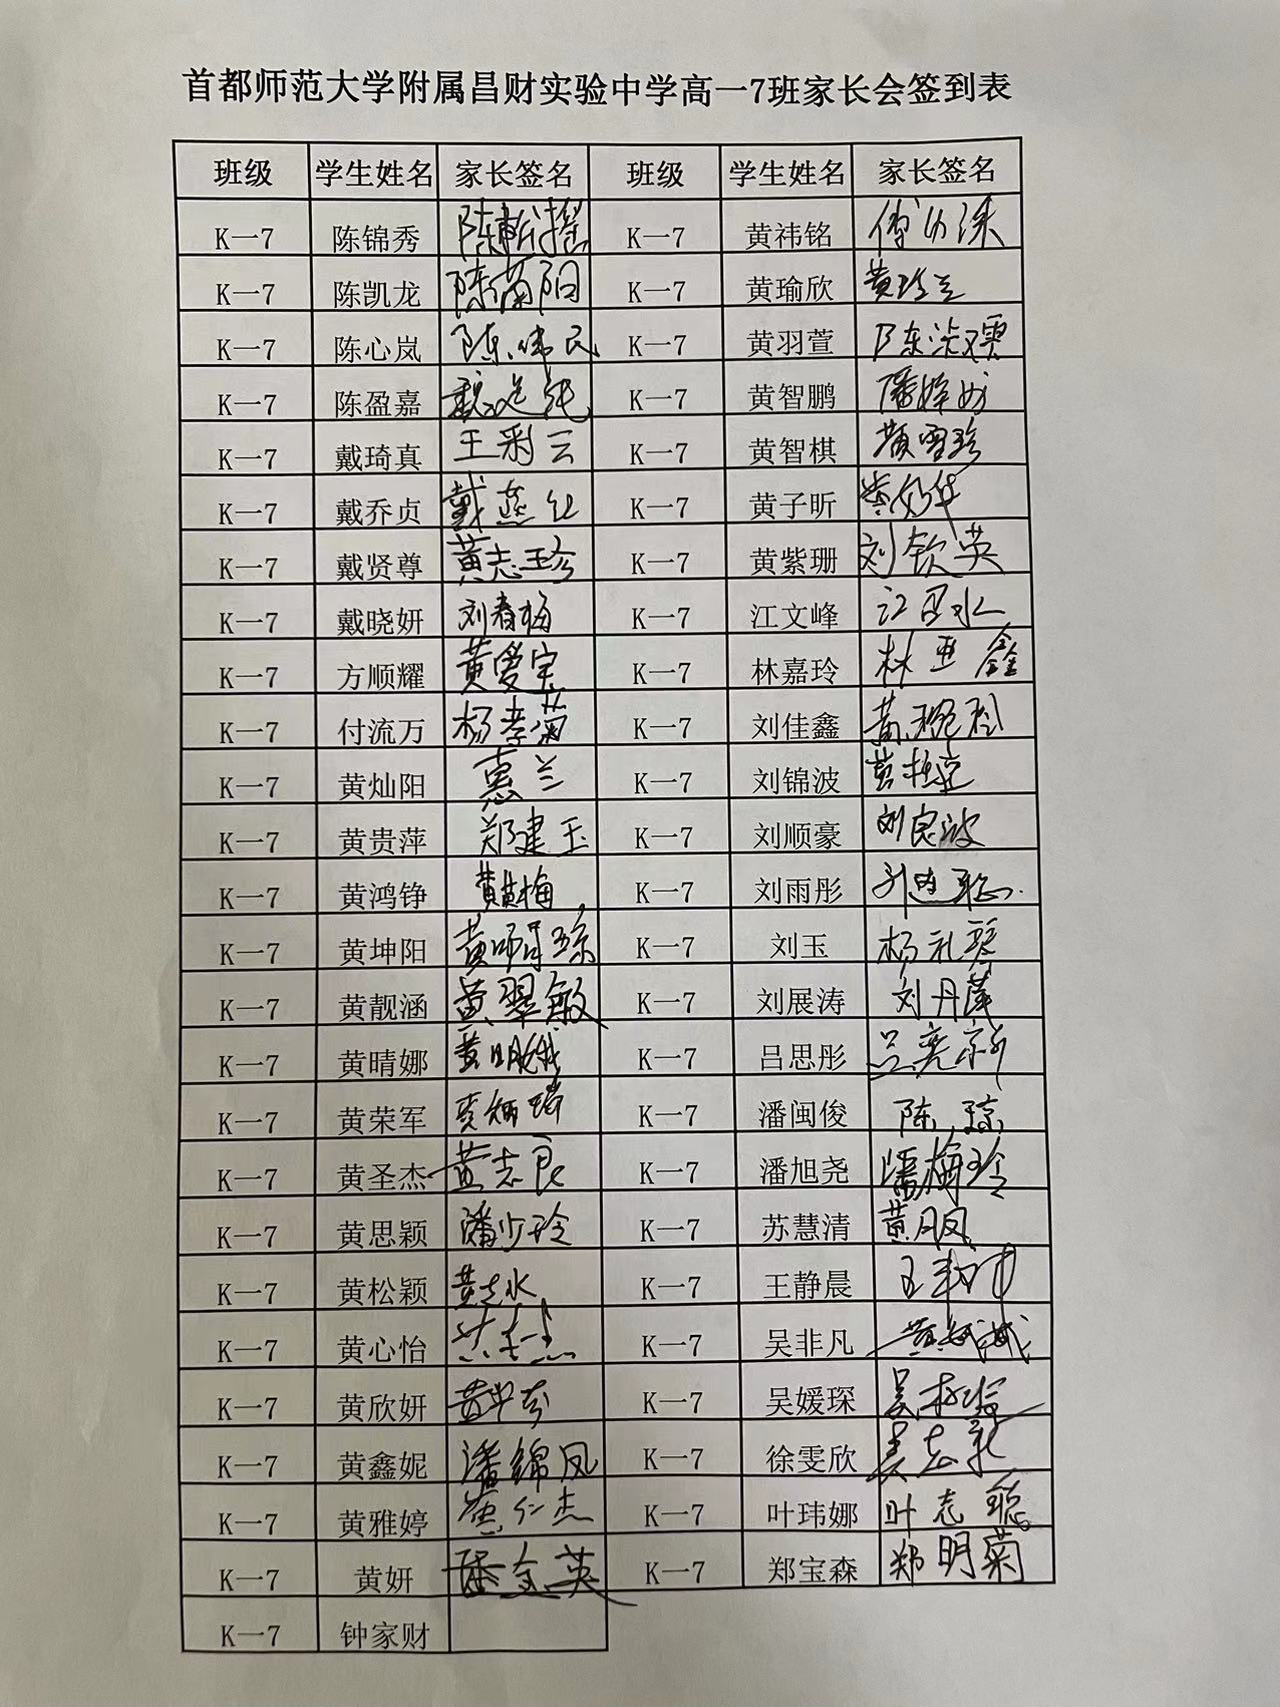 首都师范大学附属昌财实验中学高一7班家长会签到表
班级 学生姓名 家长签名 班级 学生姓名 家长签名
K一7 陈锦秀 K一7 黄祎铭
K一7 陈凯龙 陈菊阳 K一7 黄瑜欣 黄玲兰
K一7 陈心岚 陈伟民 K一7 黄羽萱
K一7 陈盈嘉 K一7 黄智鹏 潘婷婷
K一7 戴琦真 王彩云 K一7 黄智棋 颜雪珍
K一7 戴乔贞 戴燕红 K一7 黄子昕
K一7 戴贤尊 黄志珍 K一7 黄紫珊 刘钦英
K一7 戴晓妍 刘春梅 K一7 江文峰
K一7 方顺耀 黄爱宝 K一7 林嘉玲 林亚鑫
K一7 付流万 杨孝菊 K一7 刘佳鑫
K一7 黄灿阳 惠兰 K一7 刘锦波
K一7 黄贵萍 郑建玉 K一7 刘顺豪 刘良波
K一7 黄鸿铮 黄梅 K一7 刘雨彤
K一7 黄坤阳 K一7 刘玉 杨礼琴
K一7 黄靓涵 黄翠敏 K一7 刘展涛 刘丹萍
K一7 黄晴娜 黄明娥 K一7 吕思彤 吕奕新
K一7 黄荣军 K一7 潘闽俊 陈琼
K一7 黄圣杰 黄志良 K一7 潘旭尧 潘梅玲
K一7 黄思颖 潘少玲 K一7 苏慧清 黄月凤
K一7 黄松颖 黄志水 K一7 王静晨
K一7 黄心怡 K一7 吴非凡
K一7 黄欣妍 K一7 吴媛琛
K一7 黄鑫妮 潘锦凤 K一7 徐雯欣
K一7 黄雅婷 黄仁杰 K一7 叶玮娜 叶志聪
K一7 黄妍 潘金英 K一7 郑宝森 郑明菊
K一7 钟家财